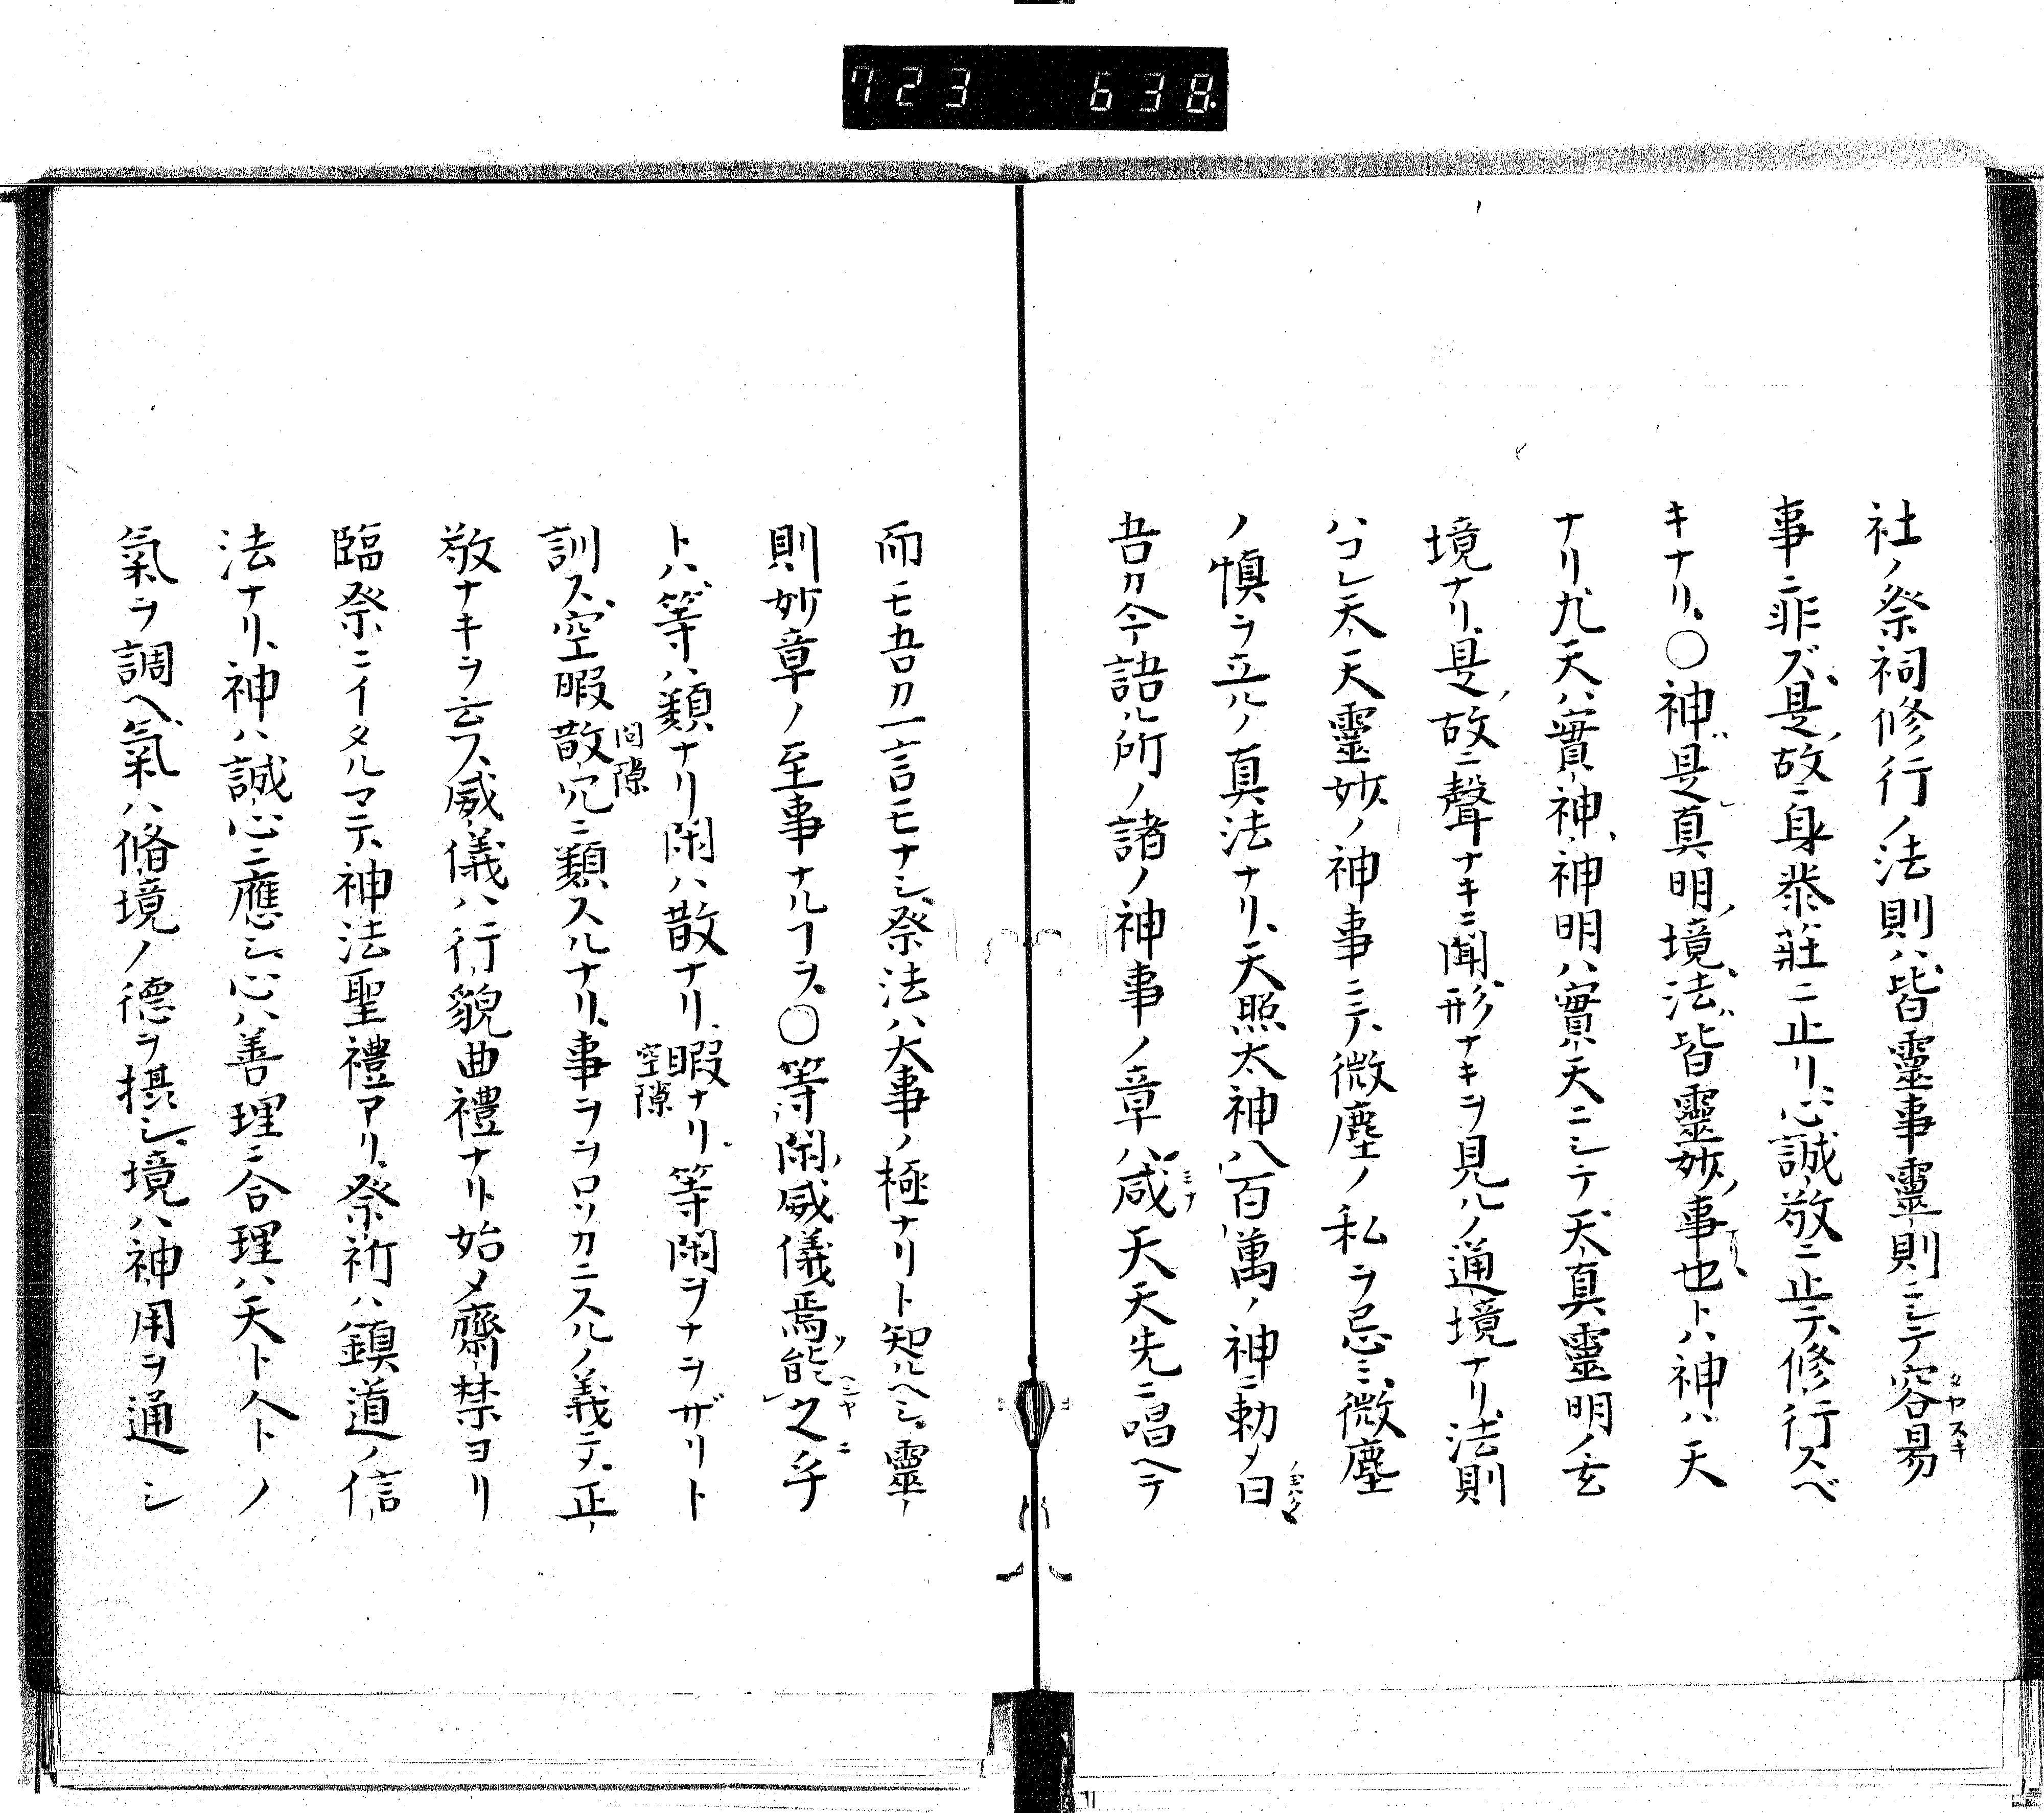 723 638
社ノ祭祠修行ノ法則ハ皆靈事靈則ニシテ容易タヤスキ
事ニ非ズ是ノ故ニ身恭莊ニ止リ心誠敬ニ止テ修行スベ
キナリ○神ハ是真明ノ境法ハ皆靈妙ノ事也ナリトハ神ハ天
ナリ凢天ハ實神神明ハ實天ニシテ天真靈明ノ玄
境ナリ是ノ故ニ聲ナキニ聞形ナキヲ見ルノ通境ナリ法則
ハコレ天天靈妙ノ神事ニテ微塵ノ私ヲ忌ミ微塵
ノ愼ヲ立ルノ真法ナリ天照太神八百萬ノ神ニ勅メ曰
吾カ今語ル所ノ諸ノ神事ノ章ハ咸ミナ天天先ニ唱ヘテ
而モ吾カ一言モナシ祭法ハ大事ノ極ナリト知ルヘシ靈
則妙章ノ至事ナルヿヲ○等閑ノ威儀焉ソ能之乎
トハ等ハ類ナリ閑ハ散ナリ暇ナリ等閑ヲナヲザリト
問隙
空隙
訓ス空暇散冗ニ類スルナリ事ヲヲロソカニスルノ義テ正
敬ナキヲ云フ威儀ハ行貌曲禮ナリ始メ齋禁ヨリ
臨祭ニイタルマテ神法聖禮アリ祭祈ハ鎮道ノ信
法ナリ神ハ誠心ニ應シ心ハ善理ニ合理ハ天ト人トノ
氣ヲ調ヘ氣ハ脩境ノ德ヲ摂シ境ハ神用ヲ通シ